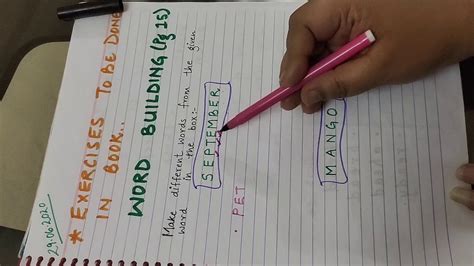 29.06.2020
* EXERCISES TO BE DONE
IN BOOK...
WORD BUILDING (Pg 15)
Make different words from the given
word in the box:-
SEPTEMBER
MANGO
• PET